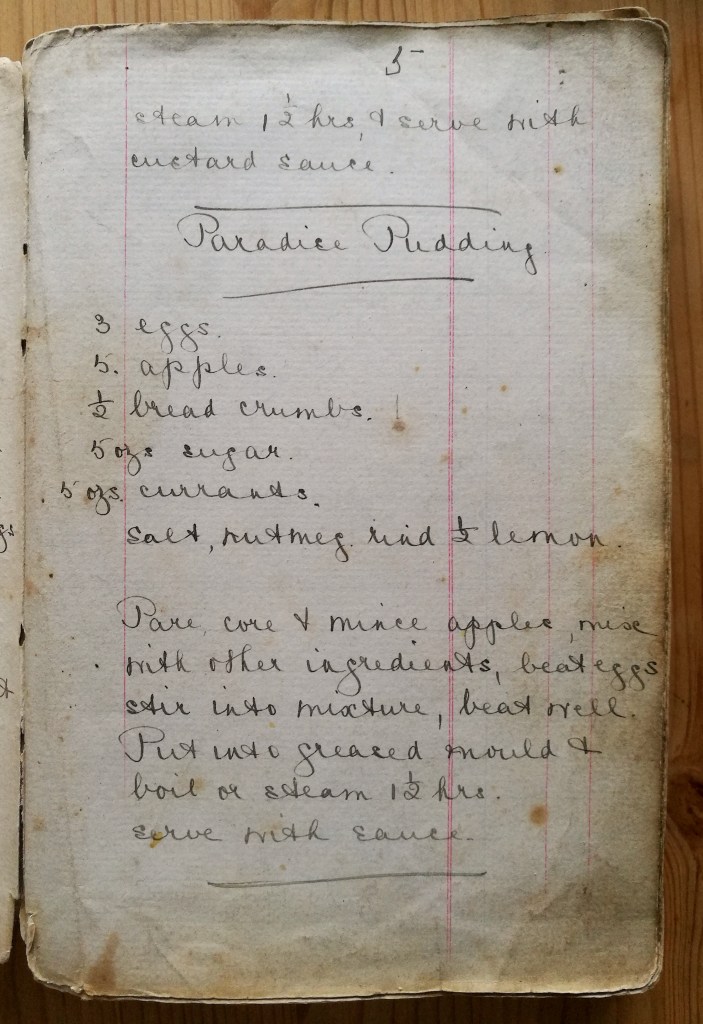 5
steam 1½ hrs, & serve with
custard sauce.
Paradise Pudding
3 eggs.
5. apples.
½ bread crumbs.
5 ozs sugar.
5 ozs. currants.
salt, nutmeg rind ½ lemon.
Pare, core & mince apples, mix
with other ingredients, beat eggs
stir into mixture, beat well.
Put into greased mould &
boil or steam 1½ hrs.
serve with sauce.